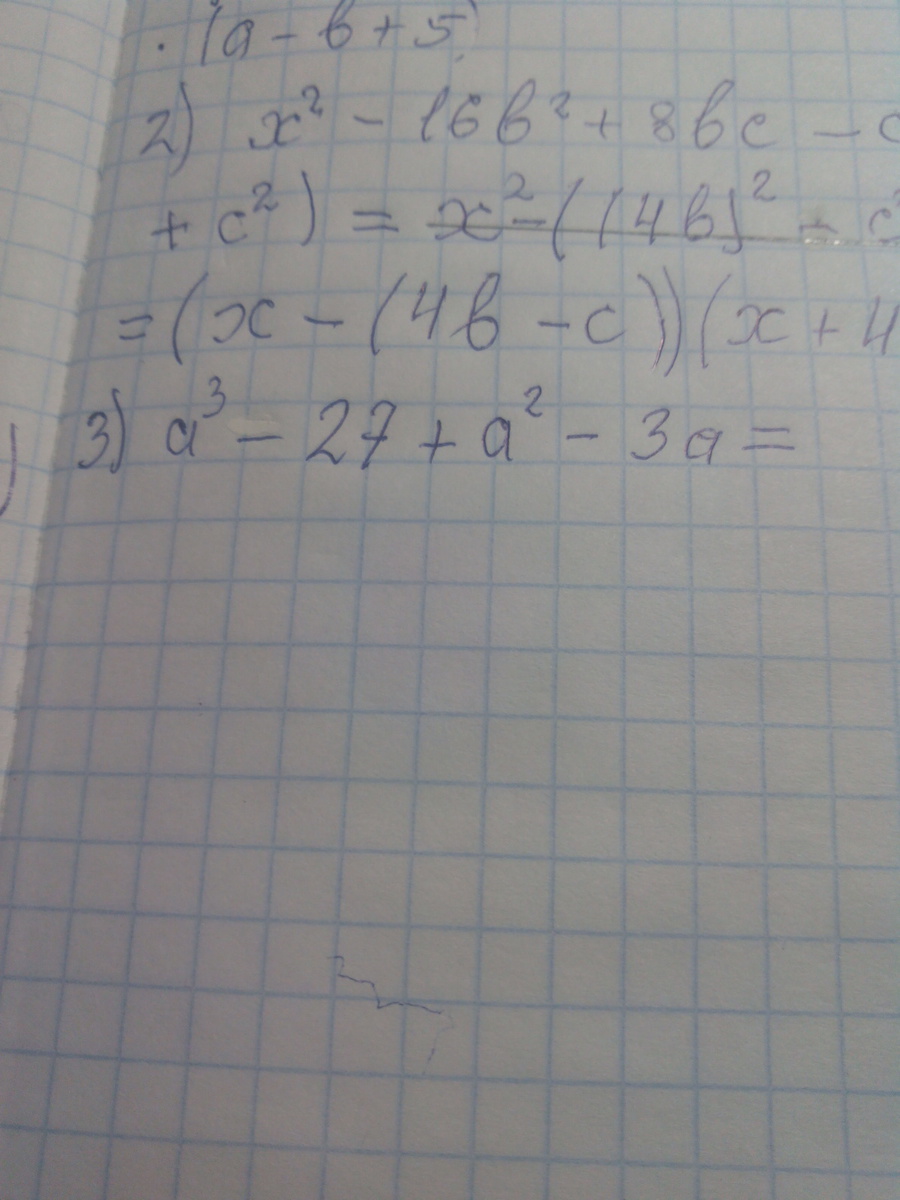 · (a - b + 5)
2) x² - 16b² + 8bc - c
+ c²) = x² - ((4b)² - c²
= (x - (4b - c))(x + 4
3) a³ - 27 + a² - 3a =